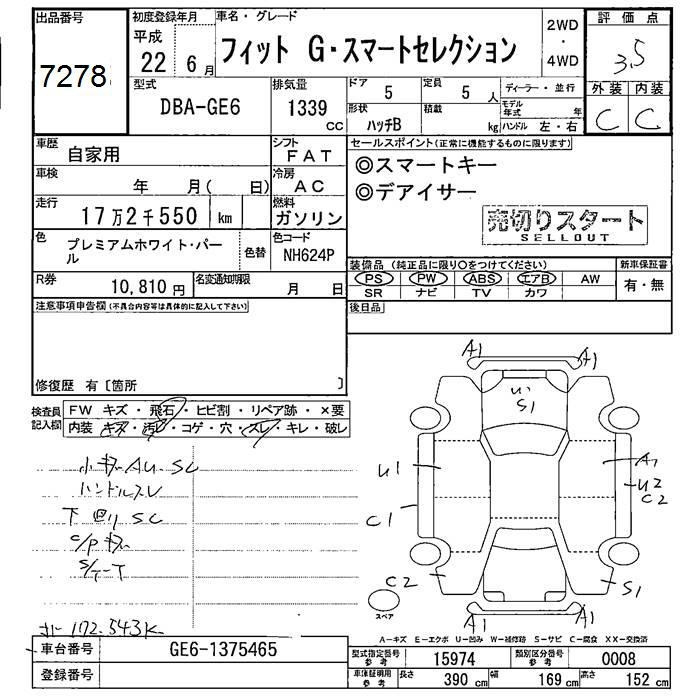 出品番号
7278
初度登録年月
平成
22年 6月
車名・グレード
フィット G・スマートセレクション
2WD
・
4WD
評価点
3.5
外装 内装
C C
型式
DBA-GE6
排気量
1339
CC
ドア
5
定員
5 人
形状
ハッチB
積載
kg
ディーラー・並行
モデル年式 年
ハンドル 左・右
車歴
自家用
シフト
FAT
車検
年 月( 日)
冷房
AC
走行
17万2千550 km
燃料
ガソリン
色
プレミアムホワイト・パール
色替
色コード
NH624P
R券
10,810 円
名変通知期限
月 日
セールスポイント(正常に機能するものに限ります)
◎スマートキー
◎デアイサー
売切りスタート
SELLOUT
装備品(純正品に限り○をつけてください)
PS PW ABS エアB AW
SR ナビ TV カワ
新車保証書
有・無
後日品
注意事項申告欄(不具合内容等は具体的に記入して下さい)
修復歴 有〔箇所 〕
検査員記入欄
FW キズ・飛石・ヒビ割・リペア跡・×要
内装 キズ・汚レ・コゲ・穴・スレ・キレ・破レ
小キズAU SC
ハンドルスレ
下回り SC
C/Pキズ
172,543K
A1
A1
U1
S1
U1
A1
U2
C2
C1
C2
S1
A1
A1
スペア
A-キズ E-エクボ U-凹み W-補修跡 S-サビ C-腐食 XX-交換済
車台番号
GE6-1375465
登録番号
型式指定番号
参考
15974
類別区分番号
参考
0008
車体証明用
参考
長さ
390 cm
幅
169 cm
高さ
152 cm